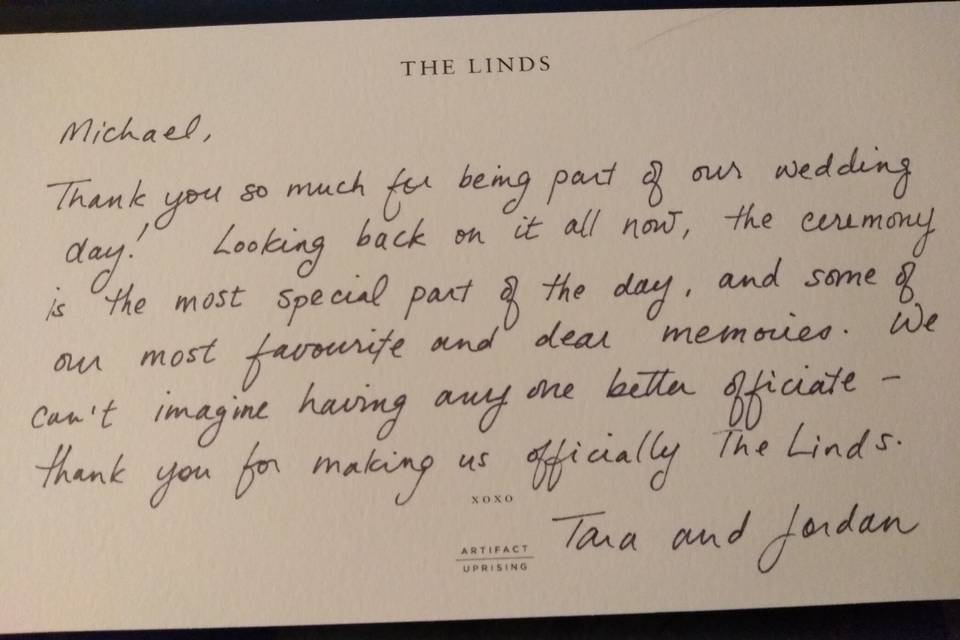 THE LINDS
Michael,
Thank you so much for being part of our wedding
day! Looking back on it all now, the ceremony
is the most special part of the day, and some of
our most favourite and dear memories. We
can't imagine having any one better officiate -
thank you for making us officially The Linds.
xoxo
Tara and Jordan
ARTIFACT
UPRISING